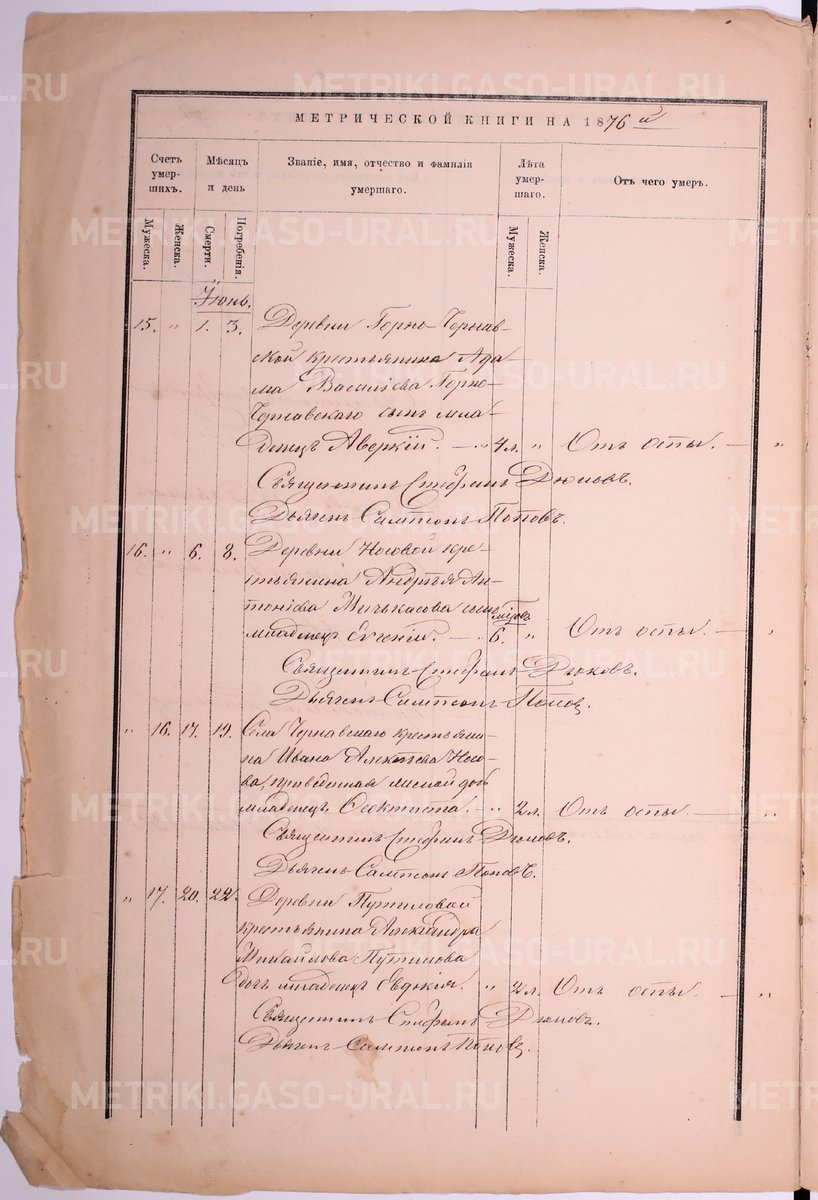 МЕТРИЧЕСКОЙ КНИГИ НА 1876 й
Счетъ умершихъ.
Мѣсяцъ и день
Званіе, имя, отчество и фамилія умершаго.
Лѣта умершаго.
Отъ чего умеръ.
Мужеска.
Женска.
Смерти.
Погребенія.
Мужеска.
Женска.
Іюнь.
15. " 1. 3. Деревни Горно-Чернав-
ской крестьянина Ада-
ма Василіева Горно-
Чернавскаго сынъ мла-
денецъ Аверкій. — " 4 л. " Отъ оспы. — "
Священникъ Стефанъ Дюковъ.
Дьячекъ Сампсонъ Поповъ.
16. " 6. 8. Деревни Носовой кре-
стьянина Андрея Ан-
тоніева сынъ
младенецъ Евгеній. — " 6. " Отъ оспы. — "
Священникъ Стефанъ Дюковъ.
Дьячекъ Сампсонъ Попов.
" 16. 17. 19. Села Чернавскаго крестьяни-
на Ивана Алексѣева Носо-
ва, дочь
младенецъ Феоктиста. — " 2 л. Отъ оспы. — "
Священникъ Стефанъ Дюковъ.
Дьячекъ Сампсонъ Поповъ.
" 17. 20. 22. Деревни Путиловой
крестьянина Александра
Михайлова Путилова
дочь младенецъ Евдокія. " 2 л. Отъ оспы. — "
Священникъ Стефанъ Дюковъ.
Дьячекъ Сампсонъ Попов.
METRIKI.GASO-URAL.RU